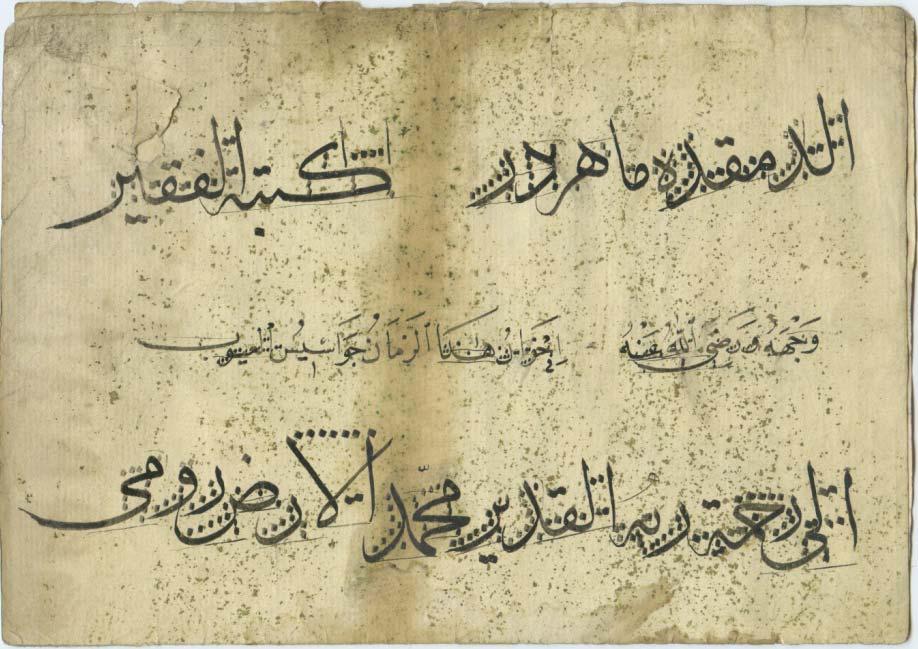 ما هردر كتبه الفقير
وَجْهَهُ وَرَضِيَ اللهُ عَنْهُ إِخْوَانُ هَذَا الزَمَانِ جَوَاسِيسُ العُيُوبِ
الى رحمة ربه القدير محمّد الارضرومى